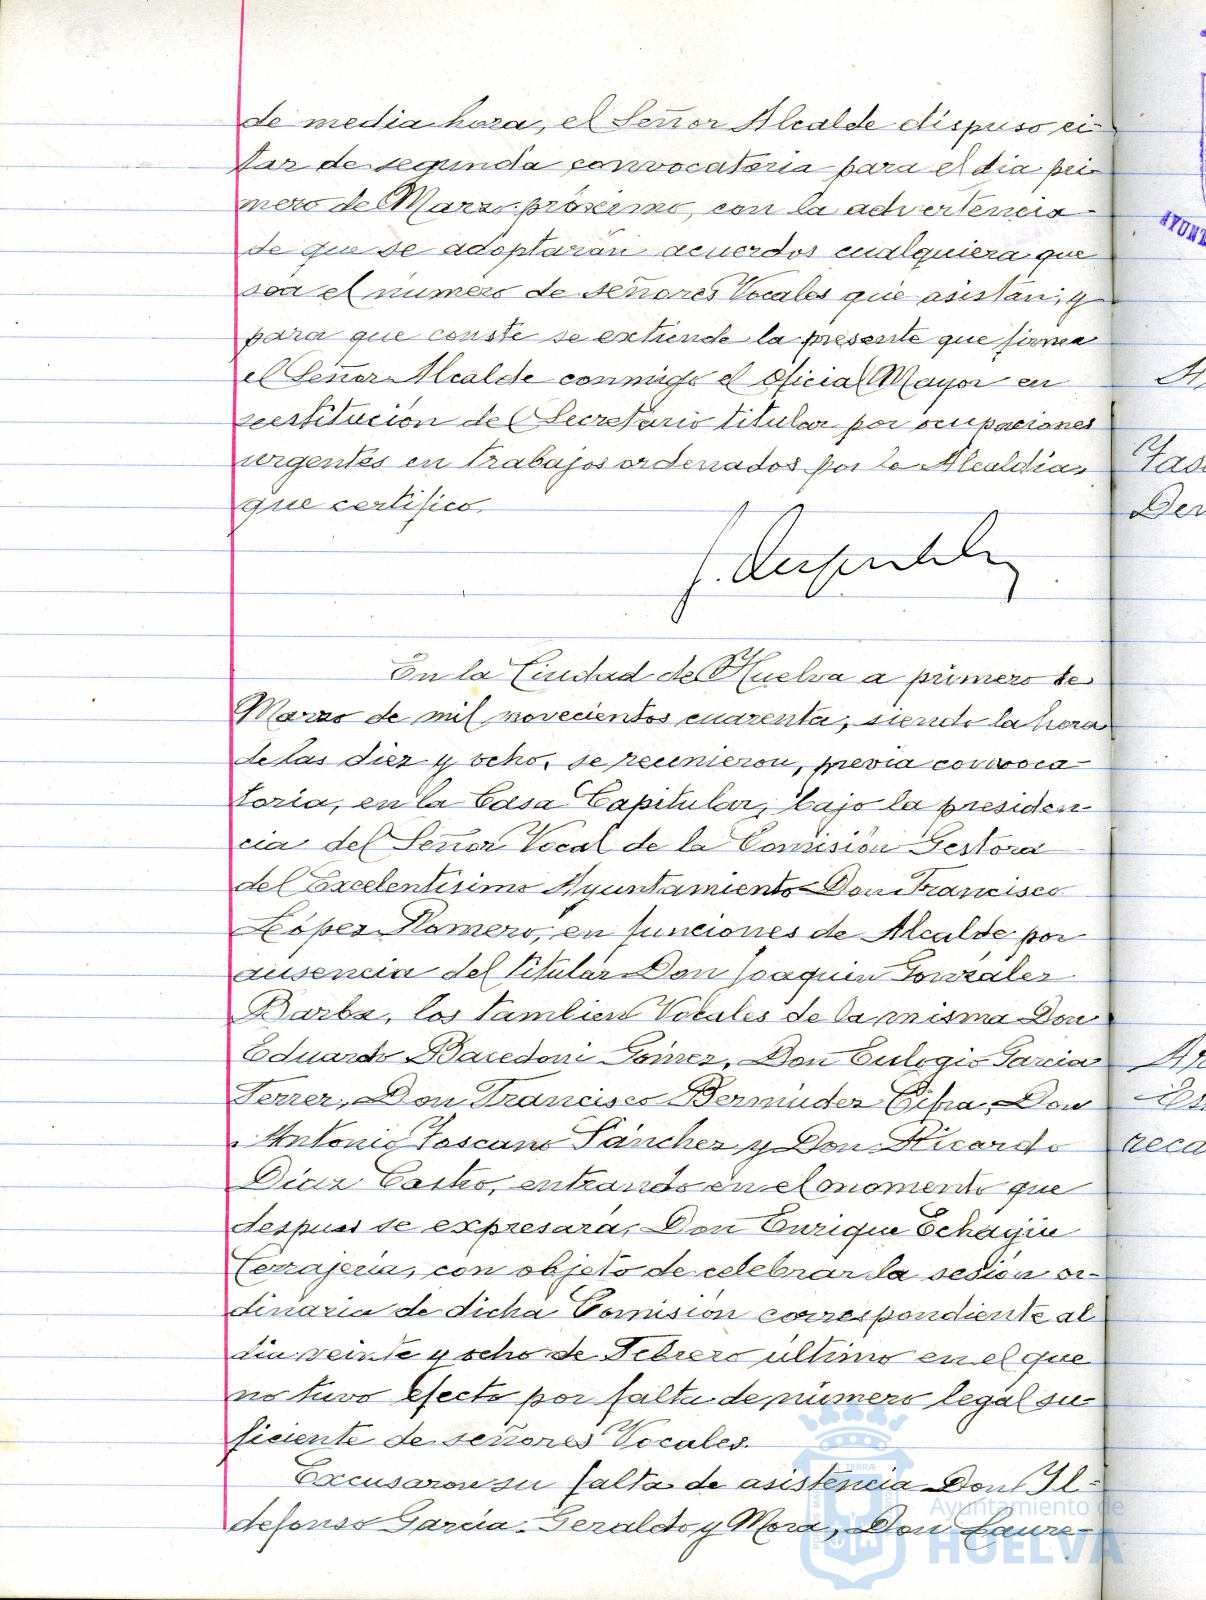 de media hora, el Señor Alcalde dispuso ci-
tar de segunda convocatoria para el dia pri-
mero de Marzo próximo, con la advertencia
de que se adoptarán acuerdos cualquiera que
sea el número de señores Vocales que asistan; y
para que conste se extiende la presente que firma
el Señor Alcalde conmigo el Oficial Mayor en
sustitución del Secretario titular por ocupaciones
urgentes en trabajos ordenados por la Alcaldía,
que certifico.
En la Ciudad de Huelva a primero de
Marzo de mil novecientos cuarenta, siendo la hora
de las diez y ocho, se reunieron, previa convoca-
toria, en la Casa Capitular, bajo la presiden-
cia del Señor Vocal de la Comisión Gestora
del Excelentísimo Ayuntamiento Don Francisco
López Romero, en funciones de Alcalde por
ausencia del titular Don Joaquin González
Barba, los tambien Vocales de la misma Don
Eduardo Bacedoni Gómez, Don Eulogio Garcia
Ferrer, Don Francisco Bermúdez Cifra, Don
Antonio Toscano Sánchez y Don Ricardo
Díaz Castro, entrando en el momento que
despues se expresará, Don Enrique Echagüe
Cerrajería, con objeto de celebrar la sesión or-
dinaria de dicha Comisión correspondiente al
dia veinte y ocho de Febrero último en el que
no tuvo efecto por falta de número legal su-
ficiente de señores Vocales.
Excusaron su falta de asistencia Don Il-
defonso García Geraldo y Mora, Don Laure-
Ayuntamiento de
HUELVA